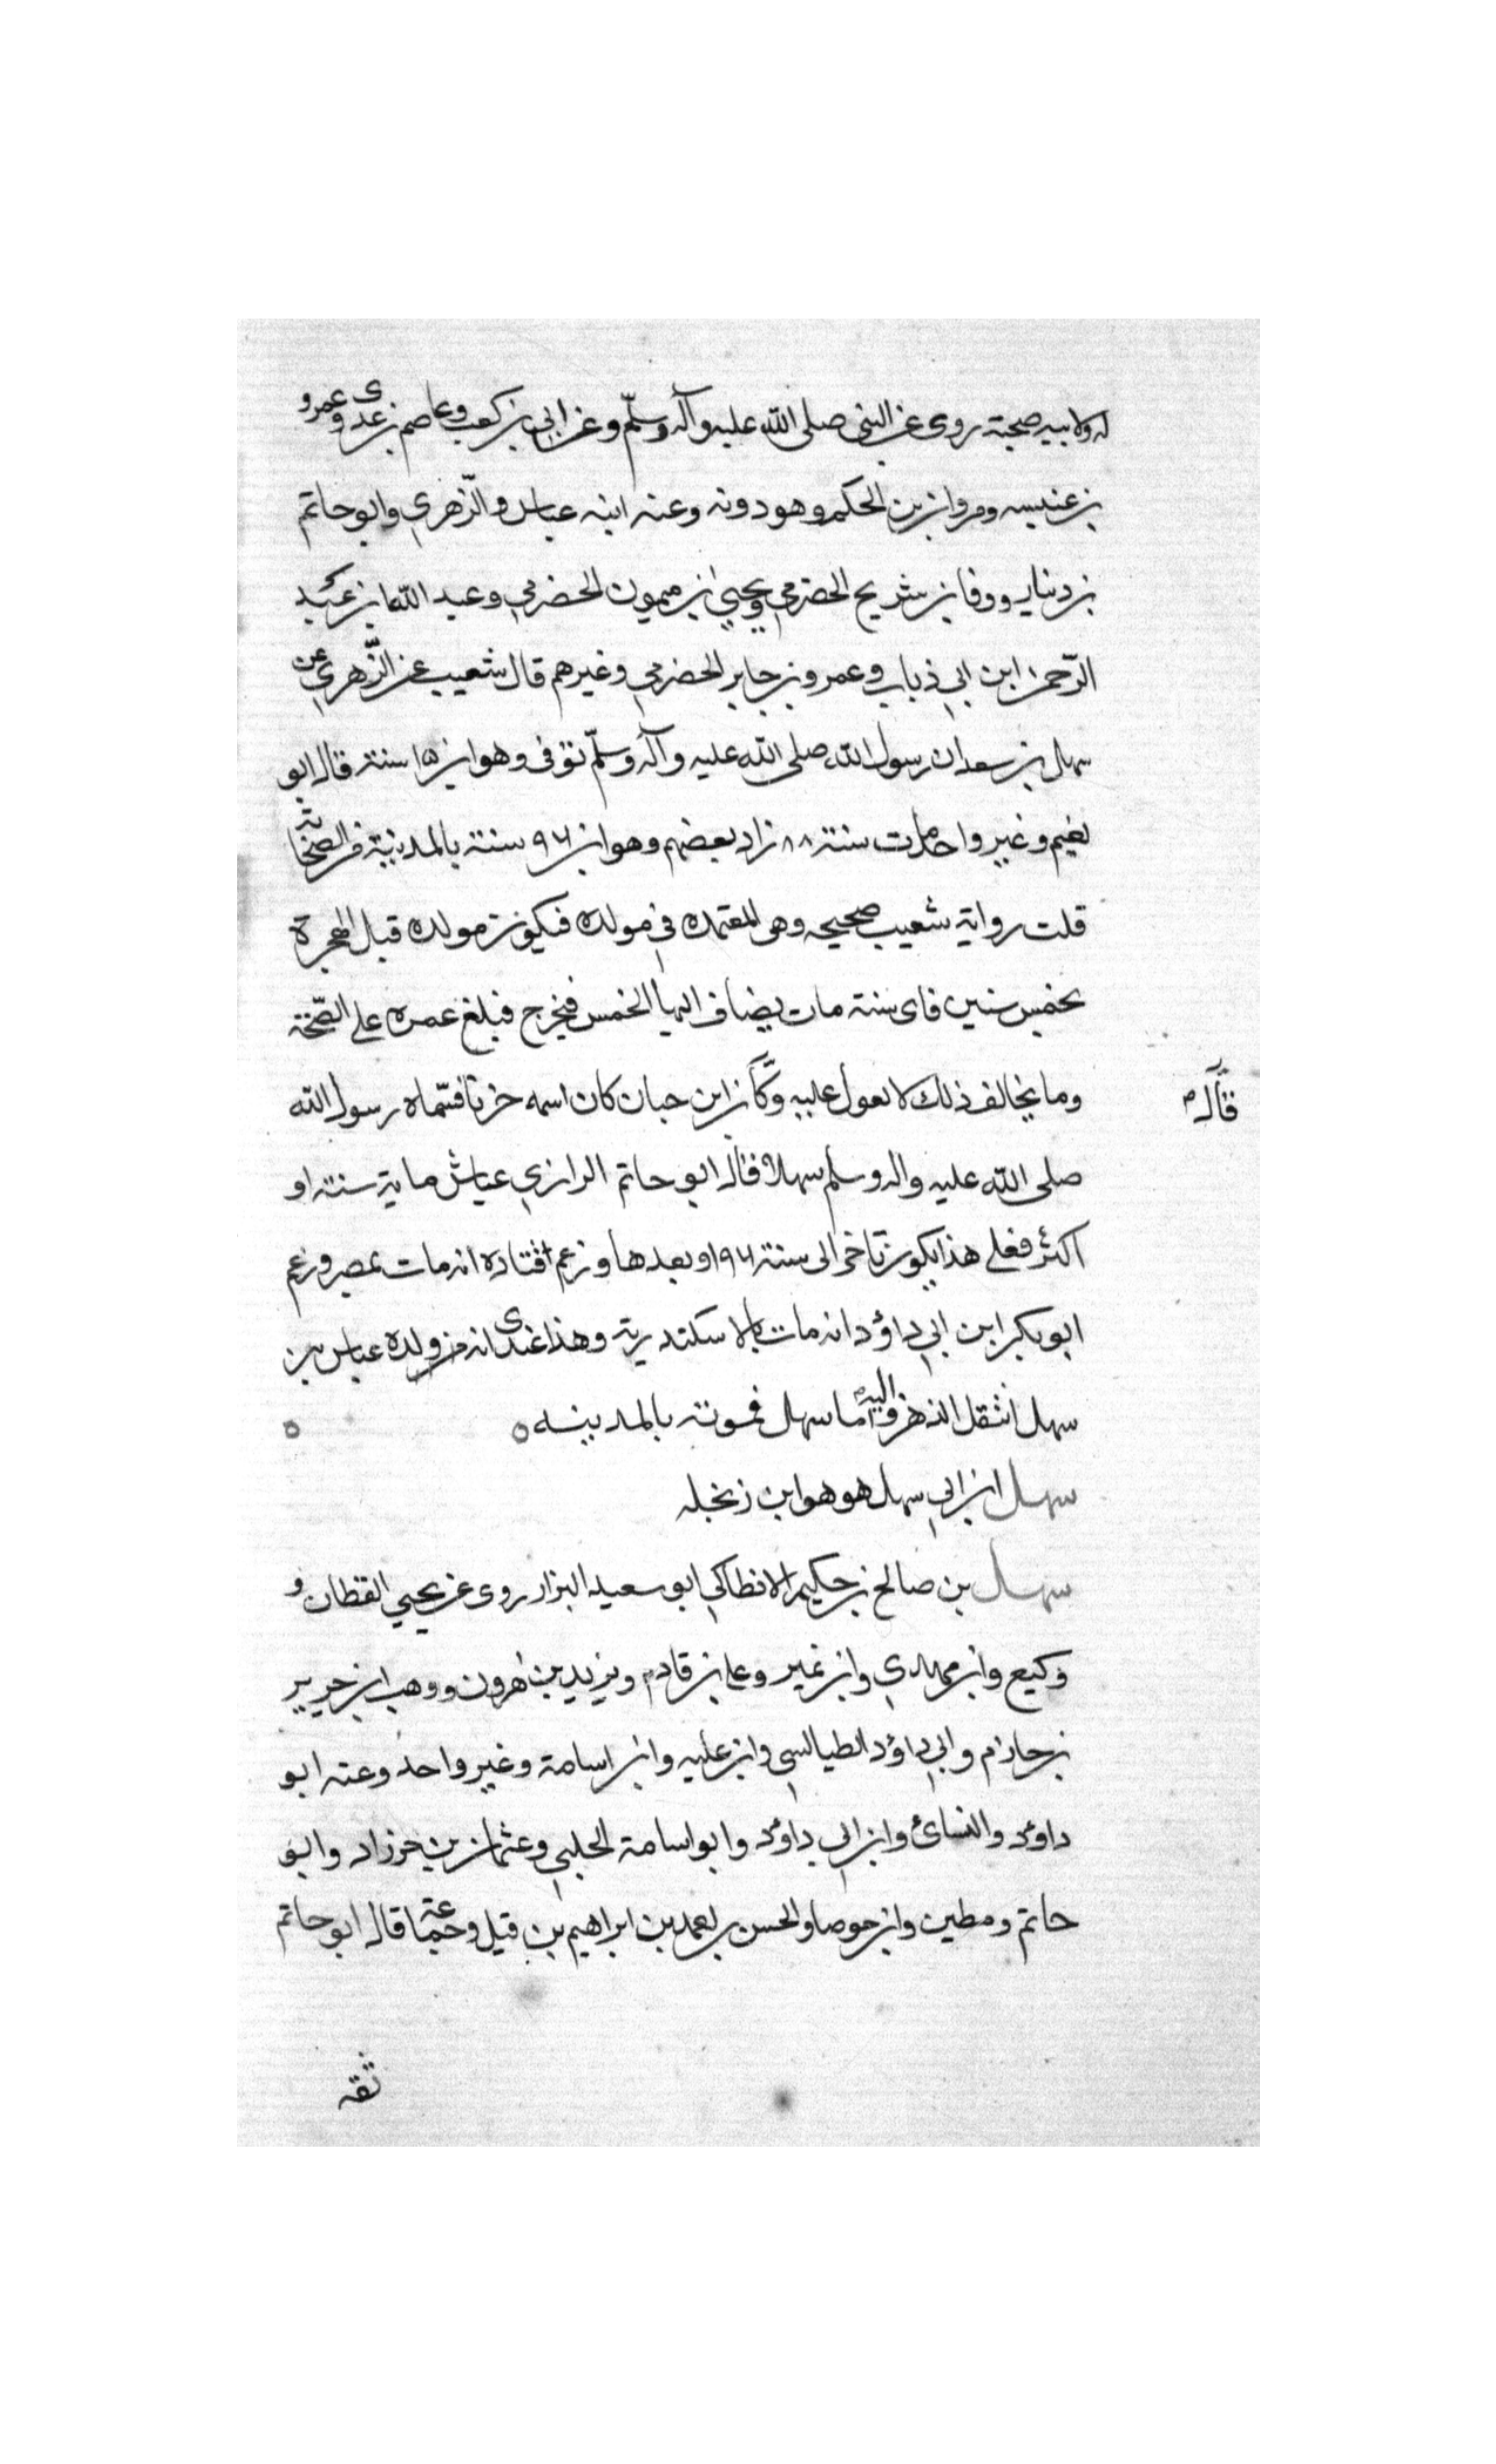 له ولابيه صحبة روى عن النبى صلى الله عليه وآله وسلّم وعن ابي بن كعب وعاصم بن عدى وعمرو
بن عنبسه ومروان بن الحكم وهو دونه وعنه ابنه عباس والزّهري وابو حاتم
بن دينار ووفا بن شريح الحضرمي ويحيي ابن ميمون الحضرمي وعبد الله ابن عبد
الرّحمن ابن ابي ذباب وعمرو بن جابر الحضرمي وغيرهم قال شعيب عن الزّهري عن
سهل بن سعد ان رسول الله صلى الله عليه وآله وسلّم توفى وهو ابن ١٥ سنة قال ابو
نعيم وغير واحد مات سنة ٨٨ زاد بعضهم وهو ابن ٩٦ سنة بالمدينة
قلت رواية شعيب صحيحه وهى المعتمده في مولده فيكون مولده قبل الهجرة
بخمس سنين فاى سنة مات يضاف اليها الخمس فيخرج فبلغ عمره على الصّحة
وما يخالف ذلك لا يعول عليه وكان ابن حبان كان اسمه حزنا فسّماه رسول الله
قال
صلى الله عليه واله وسلم سهلا قال ابو حاتم الرازي عاش ماية سنة او
اكثر فعلى هذا يكون تاخر الى سنة ٩٦ او بعدها وزعم قتاده انه مات بمصر وزعم
ابو بكر ابن ابي داؤد انه مات بالاسكندرية وهذا عندى انه من ولده عباس بن
سهل انتقل الذهن اليه واما سهل فموته بالمدينه ٥ ٥
سهل ابن ابي سهل هو هو ابن زنجله
سهل بن صالح بن حكيم الانطاكي ابو سعيد البزار روى عن يحيي القطان و
وكيع وابن مهدي وابن نمير وعلى بن قادم ويزيد بن هرون ووهب ابن جرير
بن حازم وابي داؤد الطيالسي وابن عليه وابن اسامة وغير واحد وعنه ابو
داؤد والنسائ وابن ابي داؤد وابو اسامة الحلبي وعثمان بن خرزاد وابو
حاتم ومطين وابن جوصا والحسن بن احمد بن ابراهيم بن فيل وجماعة قال ابو حاتم
ثقه